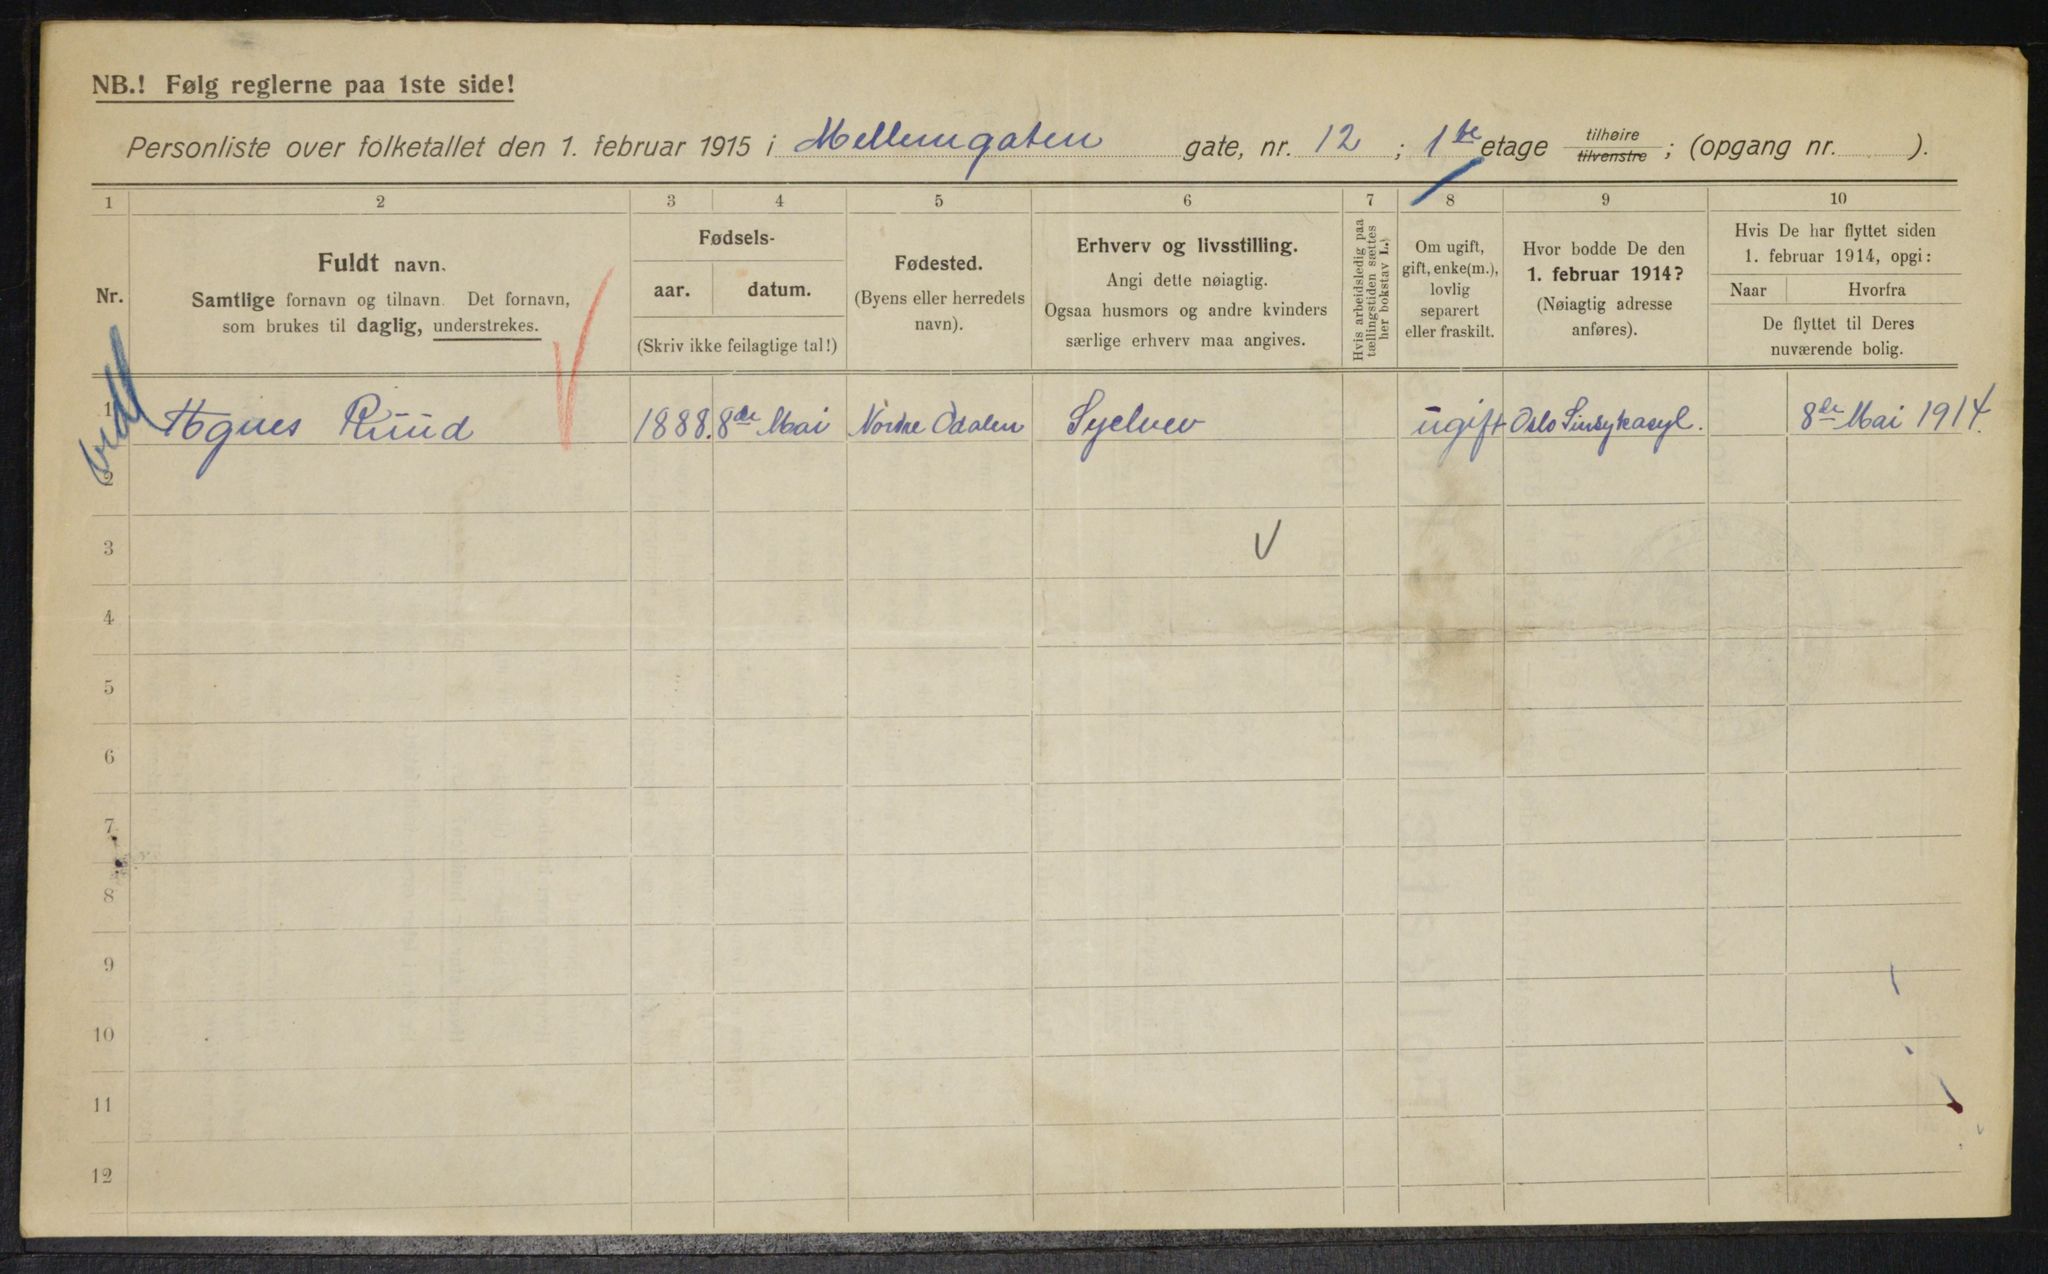 NB.! Følg reglerne paa 1ste side!
Personliste over folketallet den 1. februar 1915 i Mellemgaten gate, nr. 12 ; 1ste etage tilhøire tilvenstre ; (opgang nr. ).
1 2 3 4 5 6 7 8 9 10
Nr.
Fuldt navn.
Samtlige fornavn og tilnavn. Det fornavn,
som brukes til daglig, understrekes.
Fødsels-
aar. datum.
(Skriv ikke feilagtige tal!)
Fødested.
(Byens eller herredets
navn).
Erhverv og livsstilling.
Angi dette nøiagtig.
Ogsaa husmors og andre kvinders
særlige erhverv maa angives.
Hvis arbeidsledig paa
tællingstiden sættes
her bokstav L.)
Om ugift,
gift, enke(m.),
lovlig
separert
eller fraskilt.
Hvor bodde De den
1. februar 1914?
(Nøiagtig adresse
anføres).
Hvis De har flyttet siden
1. februar 1914, opgi:
Naar Hvorfra
De flyttet til Deres
nuværende bolig.
1 Agnes Ruud 1888. 8de Mai Nordre Odalen ugift Oslo Sinsykasyl. 8de Mai 1914.
2
3
4
5
6
7
8
9
10
11
12